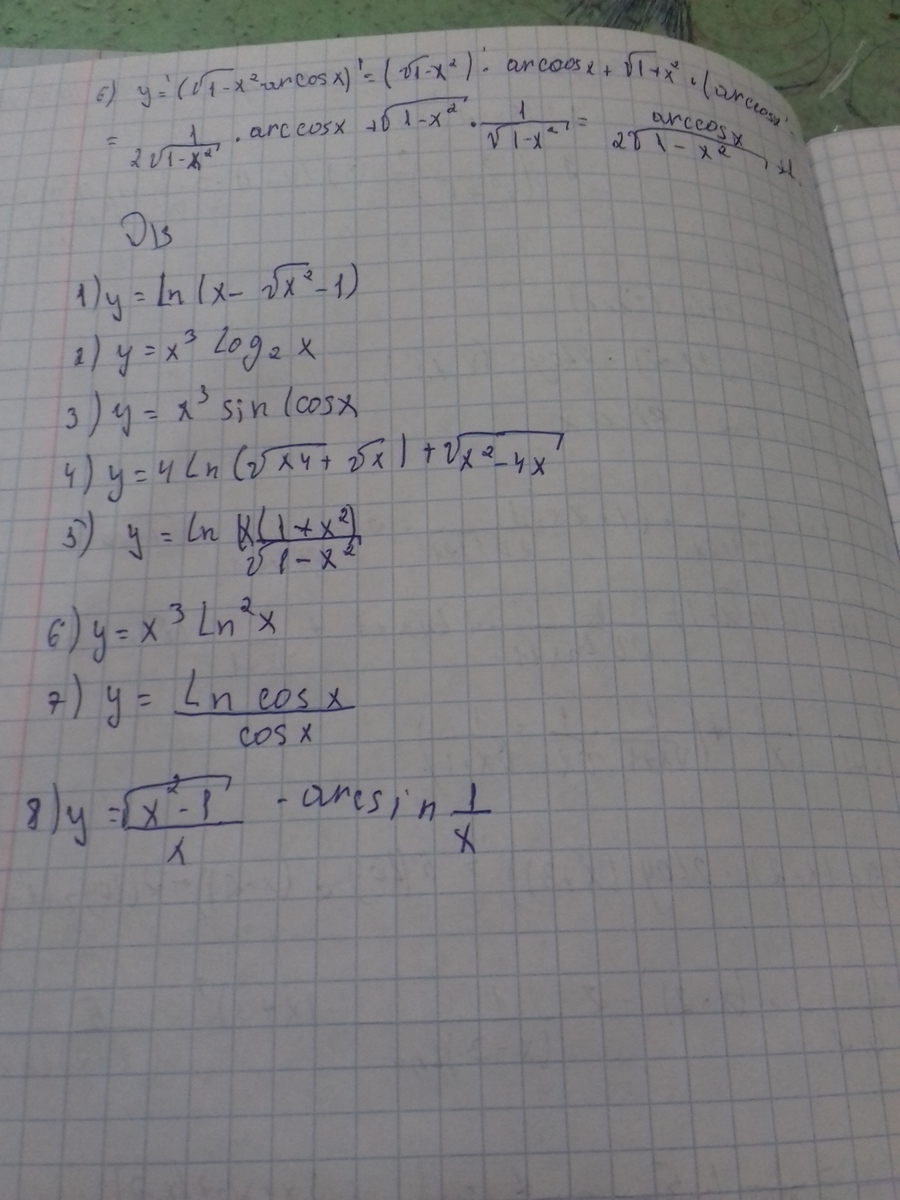 6) y' = (√1-x² · arccosx)' = (√1-x²)' · arccosx + √1+x² · (arccosx)'
= 1/(2√(1-x²)) · arccosx + √(1-x²) · 1/√(1-x²) = arccosx/(2√(1-x²))
ДЗ
1) y = Ln (x - √x² - 1)
2) y = x³ Log₂ x
3) y = x³ sin (cosx
4) y = 4 Ln (√x4 + √x) + √(x²-4x)
5) y = Ln x(1+x²)/√(1-x²)
6) y = x³ Ln²x
7) y = Ln cos x / cos x
8) y = √(x²-1)/x - arcsin 1/x